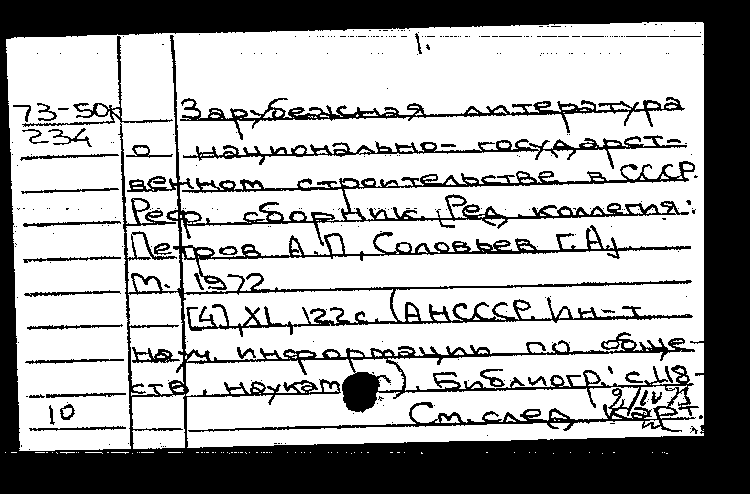 1.
73-50к Зарубежная литература
234
о национально-государст-
венном строительстве в СССР.
Реф. сборник. [Ред. коллегия:
Петров А.П., Соловьев Г.А.]
М., 1972.
[4], XL, 122с. (АН СССР. Ин-т
науч. информации по обще-
ств. наукам). Библиогр.: с.118-
10 См. след. карт.